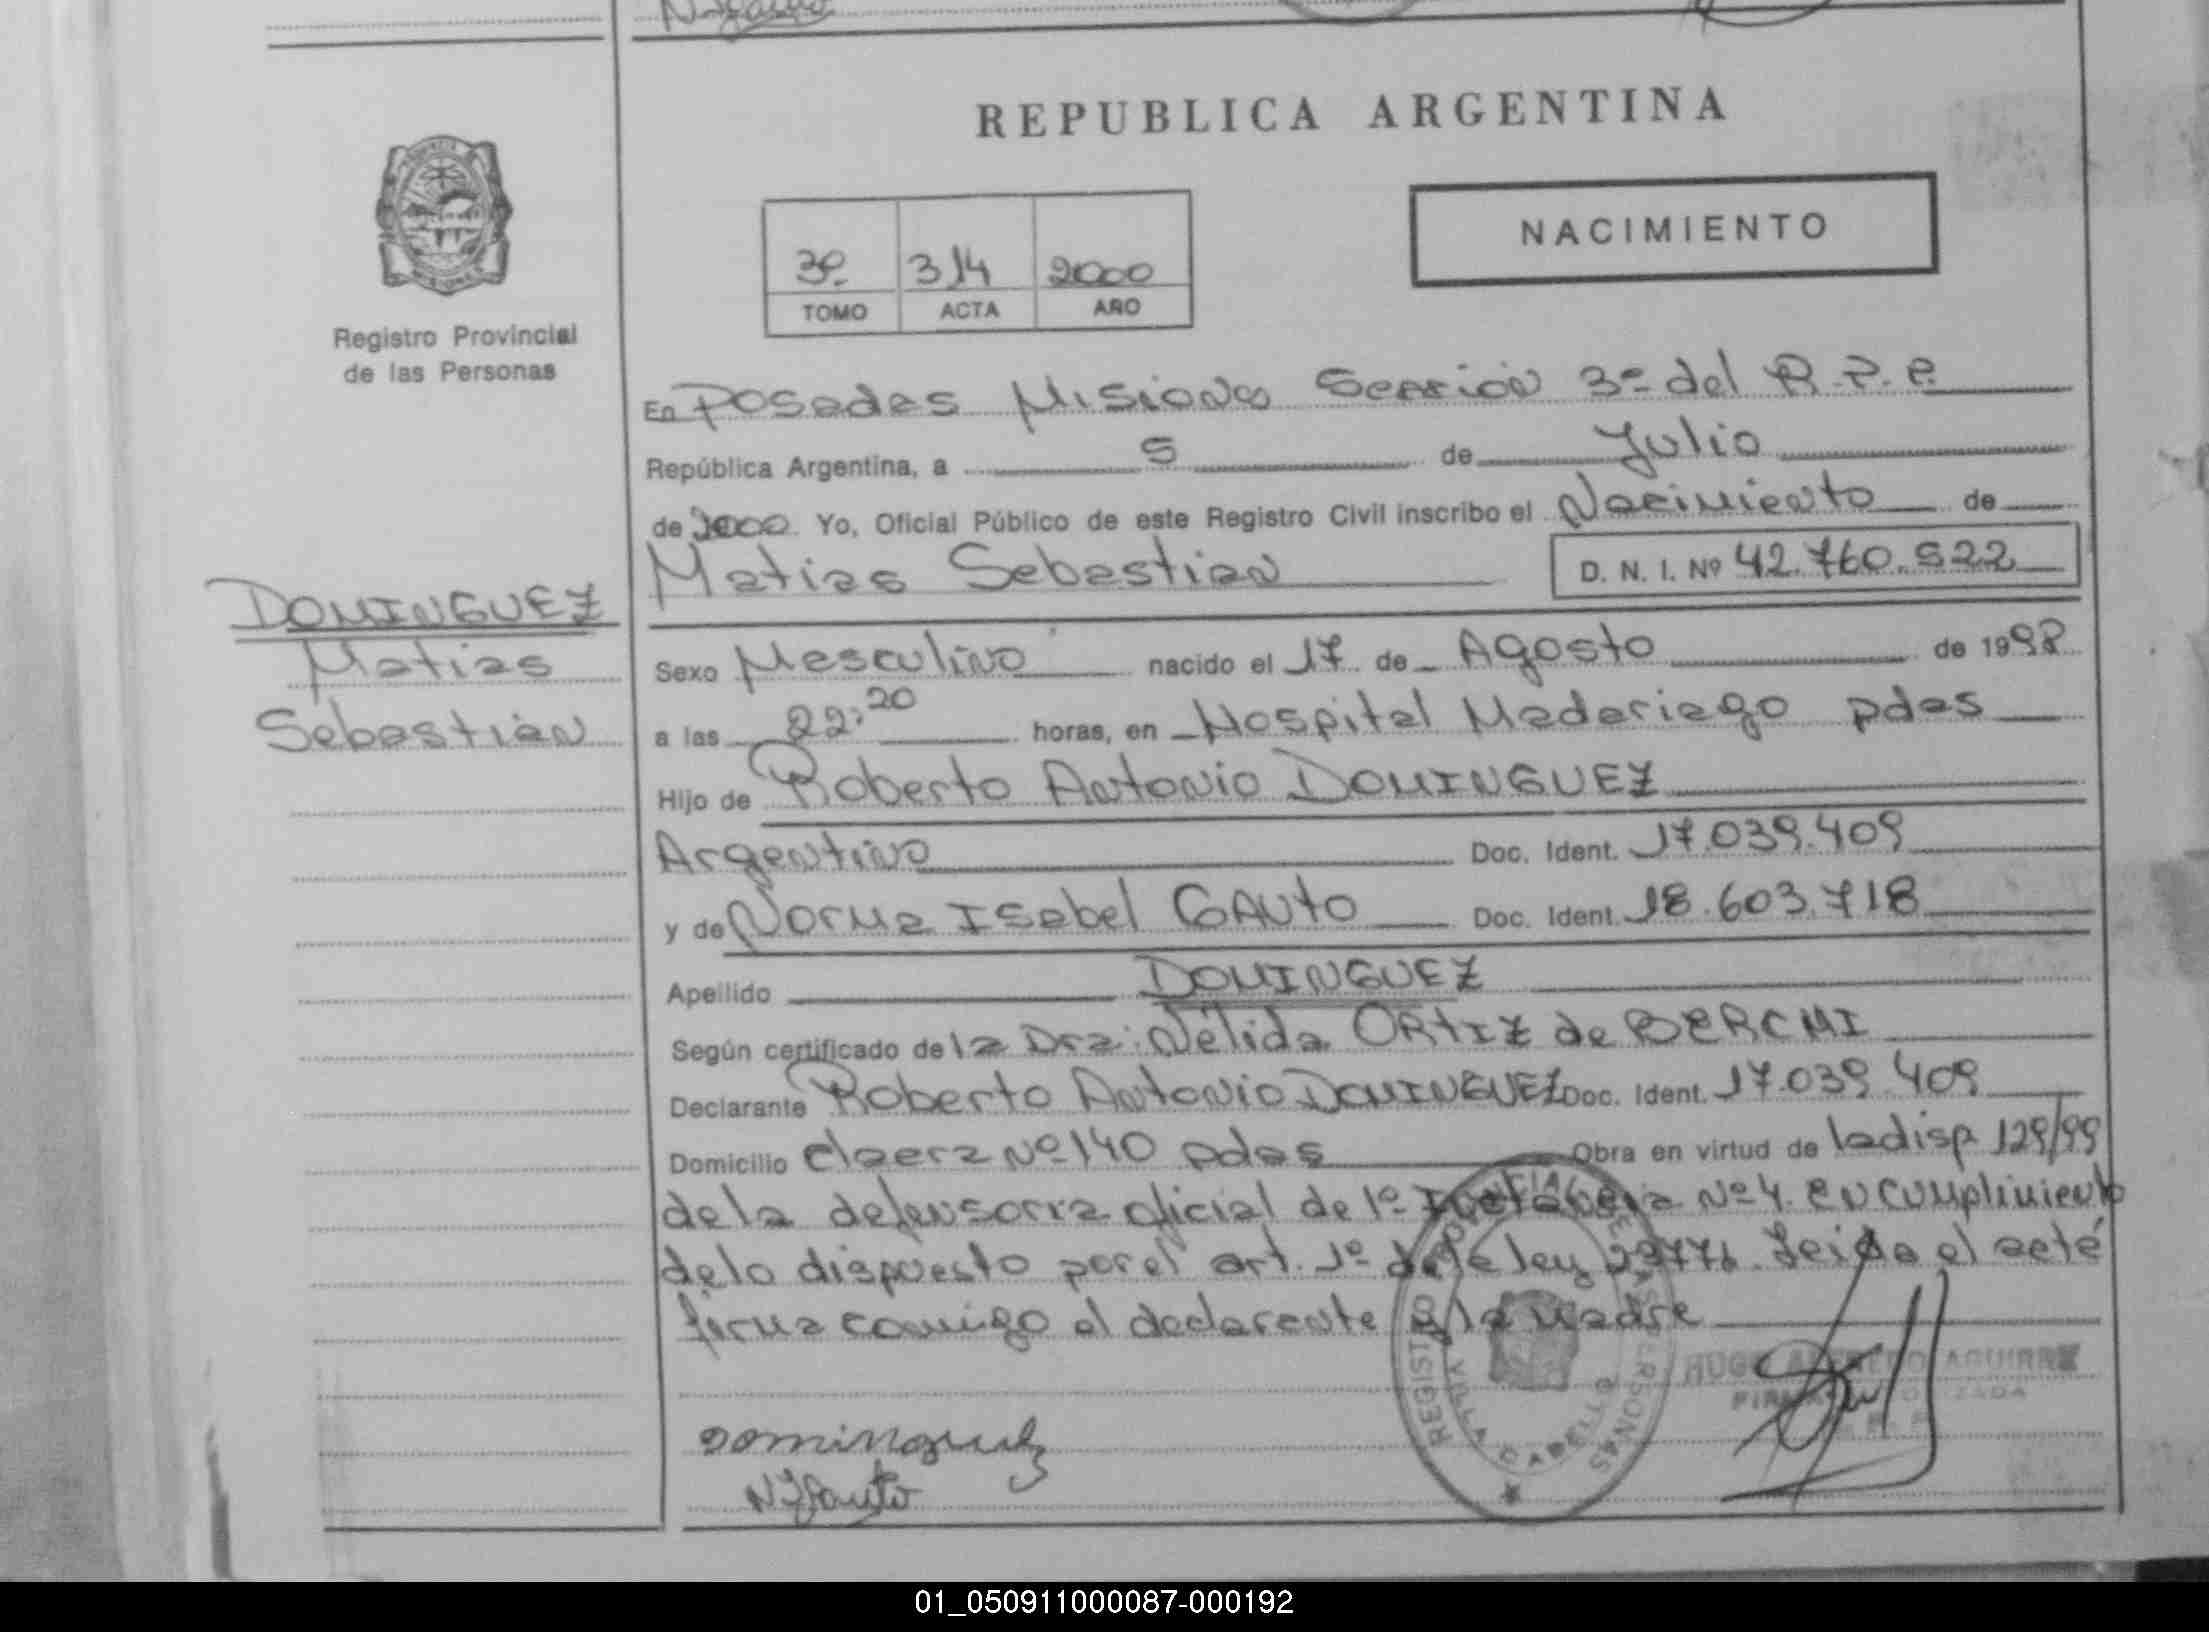 REPUBLICA ARGENTINA
NACIMIENTO
3º 314 2000
TOMO ACTA AÑO
Registro Provincial
de las Personas
En Posadas Misiones Sección 3º del R.P.P.
República Argentina, a 5 de Julio
de 2000 Yo, Oficial Público de este Registro Civil inscribo el Nacimiento de
Matias Sebastian D. N. I. Nº 42.760.522
DOMINGUEZ
Matias
Sebastián
Sexo Masculino nacido el 17 de Agosto de 1998
a las 22:20 horas, en Hospital Madariaga pdas
Hijo de Roberto Antonio DOMINGUEZ
Argentino Doc. Ident. 17.039.409
y de Norma Isabel GAUTO Doc. Ident. 18.603.718
Apellido DOMINGUEZ
Según certificado de la Dra: Nélida ORTIZ de
Declarante Roberto Antonio DOMINGUEZ Doc. Ident. 17.039.409
Domicilio Nº 140 pdas Obra en virtud de la disp. 129/99
de la defensoria oficial de 1º Instancia Nº 4. en cumplimiento
de lo dispuesto por el art. 1º de la ley Leida el acta
firma conmigo el declarante y la madre
HUGO ALFREDO AGUIRRE
Dominguez
N I Gauto
REGISTRO PROVINCIAL DE LAS PERSONAS
VILLA CABELLO
01_050911000087-000192